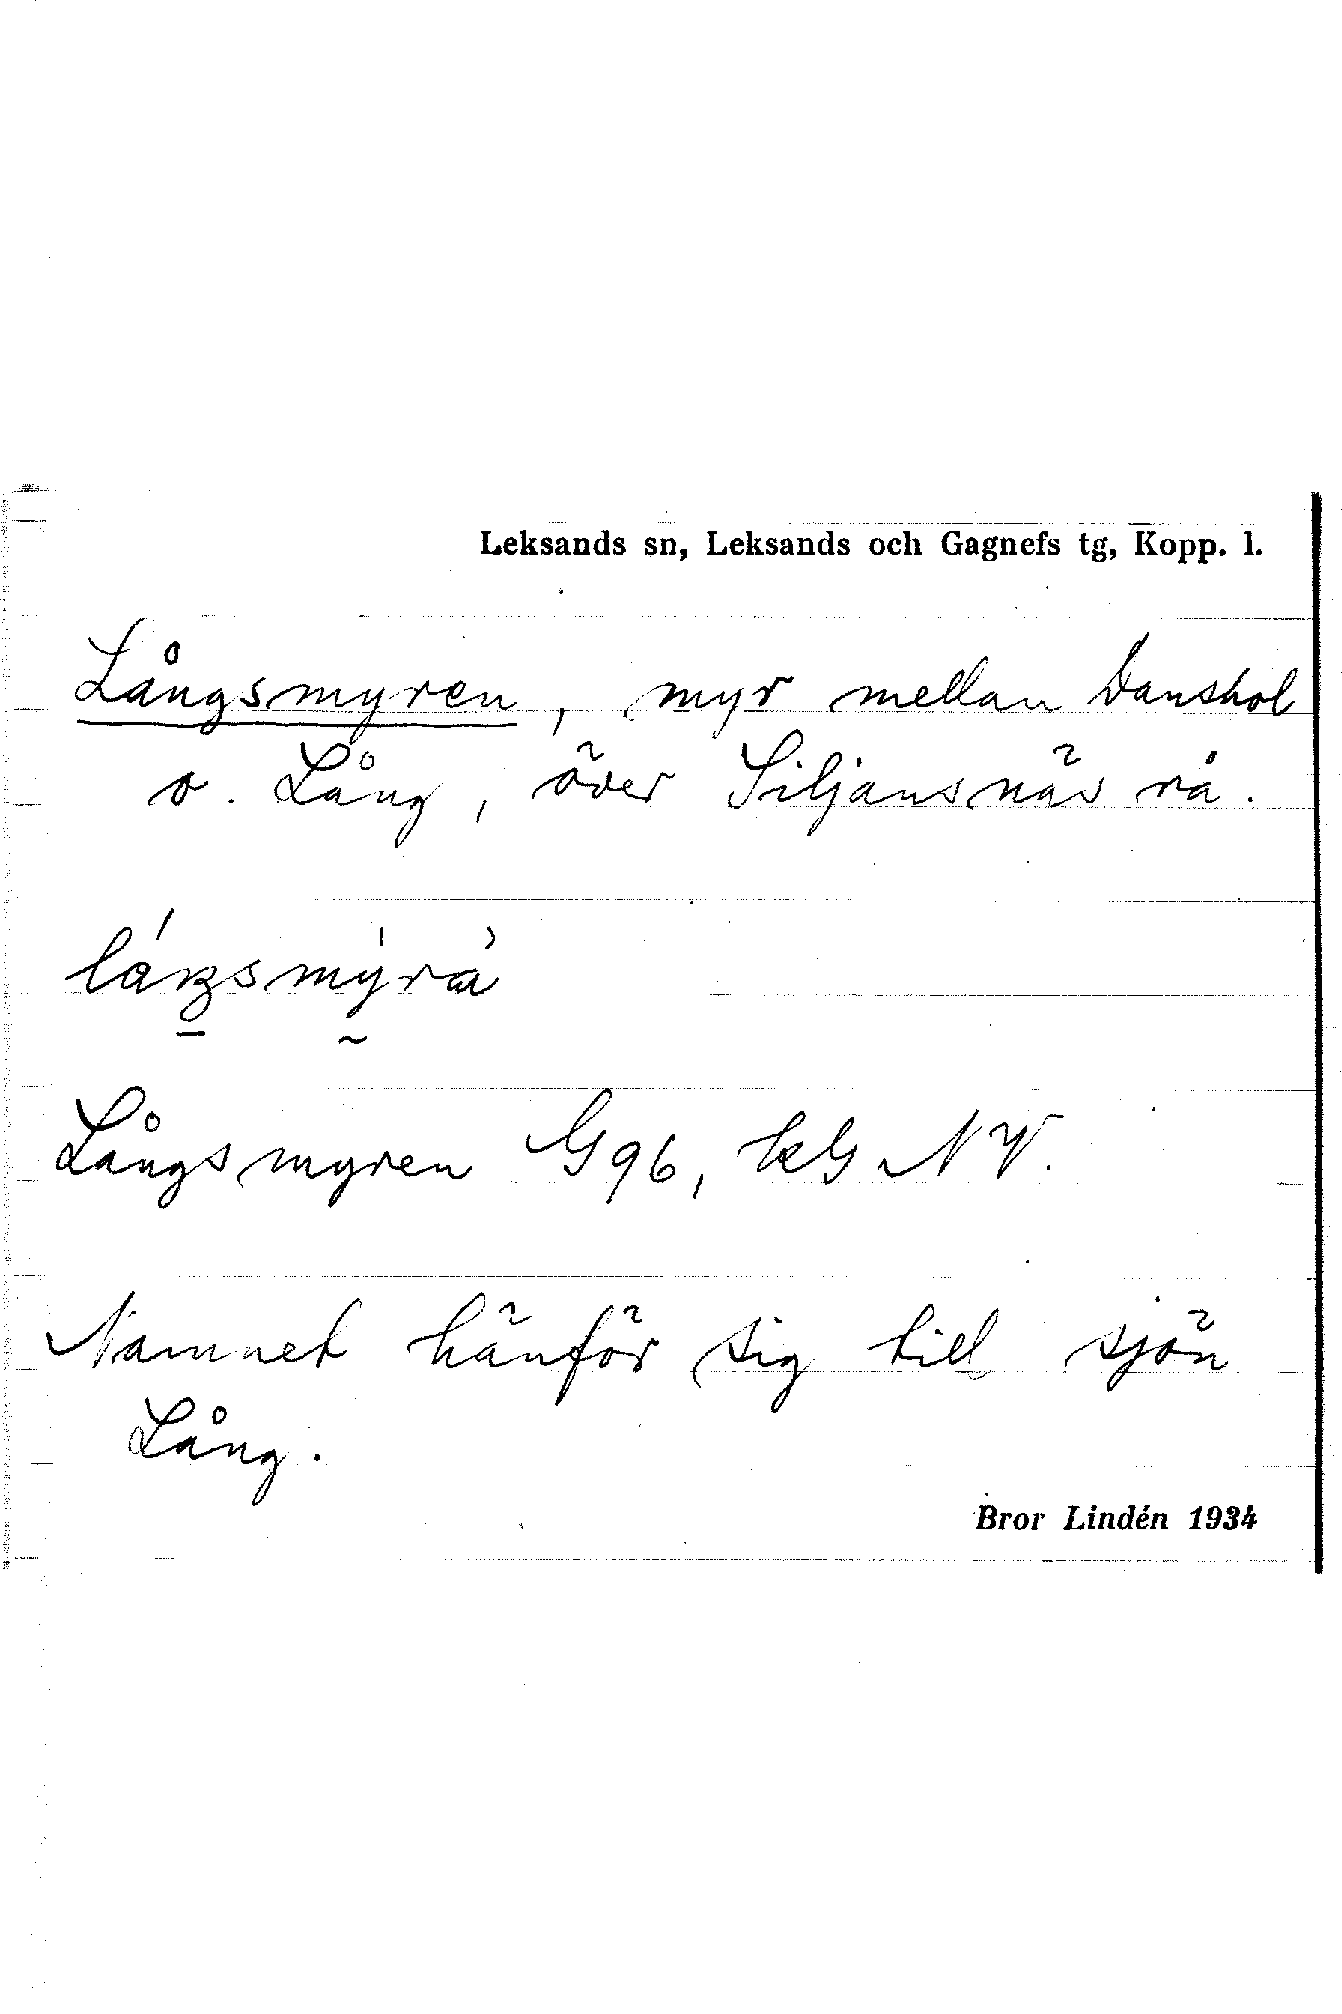 Leksands sn, Leksands och Gagnefs tg, Kopp. l.
Långsmyren, myr mellan Danshol
o. Lång, över Siljansnäs rå.
Långsmyren G96, kG NV.
Namnet hänför sig till sjön
Lång.
Bror Lindén 1934